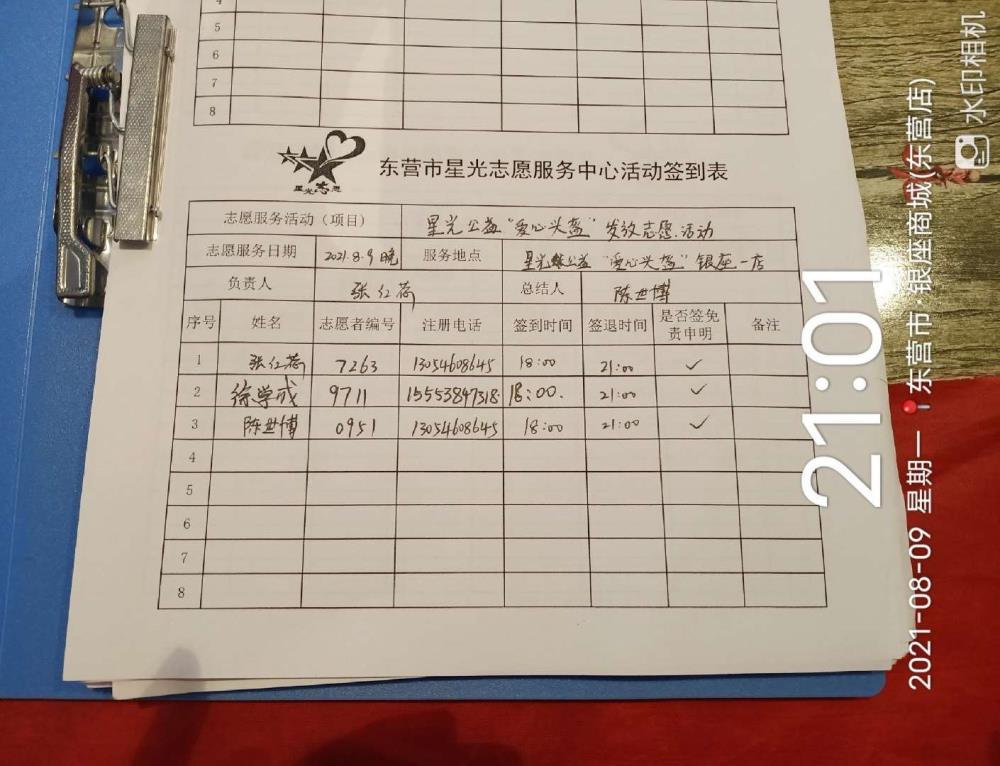 4
5
6
7
8
星光志愿
东营市星光志愿服务中心活动签到表
志愿服务活动（项目） 星光公益“爱心头盔”发放志愿活动
志愿服务日期 2021.8.9晚 服务地点 星光公益“爱心头盔”银座一店
负责人 张红荷 总结人 陈世博
序号 姓名 志愿者编号 注册电话 签到时间 签退时间 是否签免责申明 备注
1 张红荷 7263 13054608645 18:00 21:00 ✓
2 徐学成 9711 15553847318 18:00. 21:00 ✓
3 陈世博 0951 13054608645 18:00 21:00 ✓
4
5
6
7
8
21:01
2021-08-09 星期一 东营市·银座商城(东营店)
水印相机